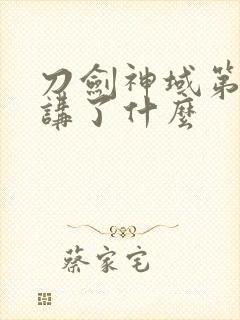 刀劍神域第
講了什麼
蔡家宅